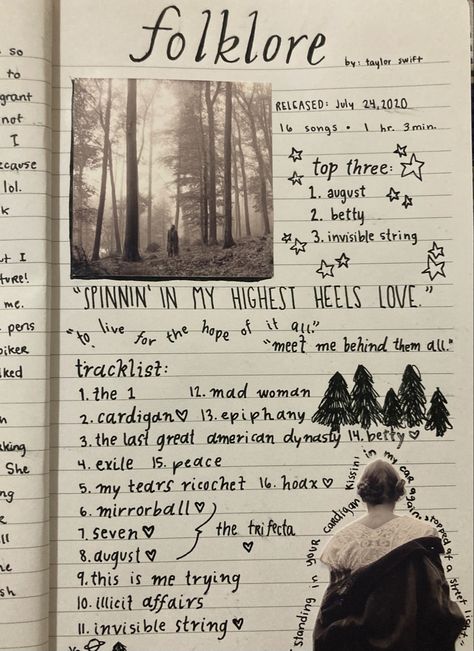 folklore
by: taylor swift
RELEASED: July 24, 2020
16 songs • 1 hr. 3 min.
top three:
1. august
2. betty
3. invisible string
"SPINNIN' IN MY HIGHEST HEELS LOVE."
"to live for the hope of it all."
"meet me behind them all."
tracklist:
1. the 1
2. cardigan♡
3. the last great american dynasty
4. exile
5. my tears ricochet
6. mirrorball♡
7. seven♡
8. august♡
the trifecta
♡
9. this is me trying
10. illicit affairs
11. invisible string♡
12. mad woman
13. epiphany
14. betty♡
15. peace
16. hoax♡
"standing in your cardigan kissin' in my car again stopped at a street light"
so
to
grant
not
I
ecause
lol.
k
ut I
ture!
me.
pens
oiker
ked
aking
She
ng
ll
he
sh